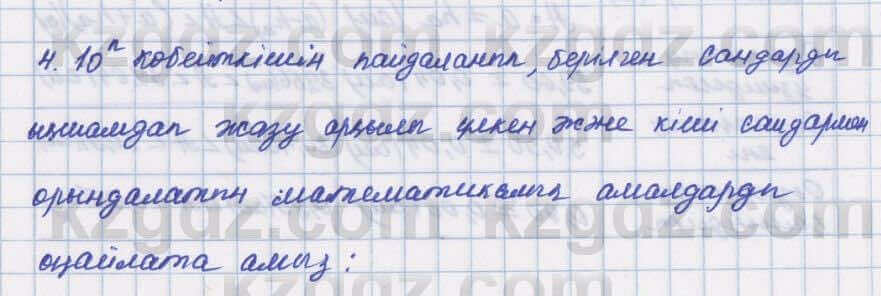 4. 10ⁿ көбейткішін пайдаланып, берілген сандарды
ықшамдап жазу арқылы үлкен және кіші сандармен
орындалатын математикалық амалдарды
оңайлата амыз:
kzgdz.com kzgdz.com
kzgdz.com kzgdz.com